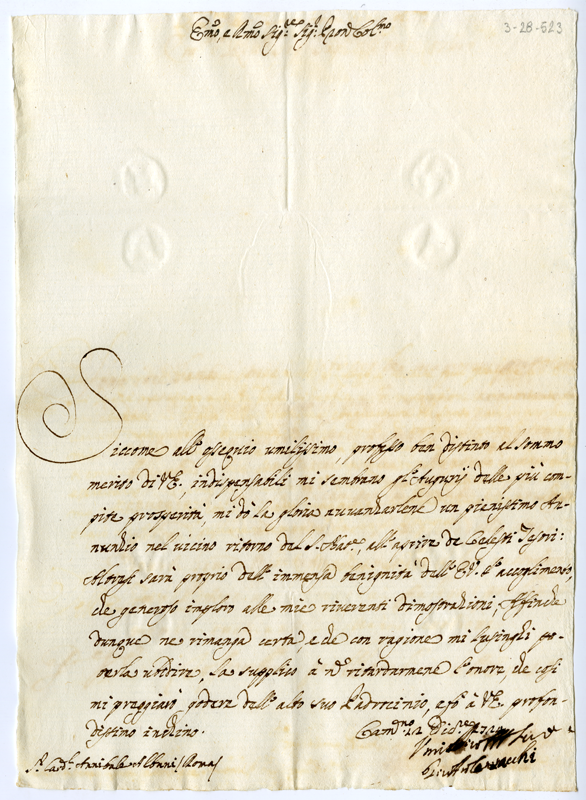 3-28-523
Emo, e Rmo Sigre Sigr Pron Colmo
Siccome all' osequio umilissimo, professo ben distinto al sommo
merito di VE, indispensabili mi sembrano gl' Augurij delle più com-
pite prosperità, mi dò la gloria avvanzarlene un pienissimo An-
nunzio nel vicino ritorno del S. Nate, all' aprire de Celesti Tesori:
Altresi sarà proprio dell' immensa benignità dell' EV. l' accoglimento,
che generoso imploro alle mie riverenti dimostrazioni, Affinche
dunque ne rimanga certa, e che con ragione mi lusinghi po-
terla ubbidire, la supplico à nò ritardarmene l'onore, che così
mi preggiarò godere dell' alto suo Padrocinio, e fò à VE. profon-
dissimo inchino.
Xbre
Sr Cardl Annibale Albani (Roma)